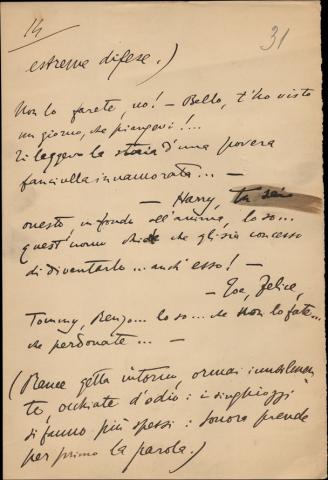 14
31
estreme difese.)
Non lo farete, no! – Bello, t'ho visto
un giorno, che piangevi!...
Ti leggevo la storia d'una povera
fanciulla innamorata... –
– Harry, tu sei
onesto, in fondo all'anima, lo so...
quest'uomo chiede che gli sia concesso
di diventarlo... anch'esso! –
– Joe, Felice,
Tommy, Benzo... lo so... che non lo fate...
che perdonate... –
(Rance getta intorno, ormai inutilmen
te, occhiate d'odio: i singhiozzi
si fanno più spessi: sonora prende
per primo la parola.)